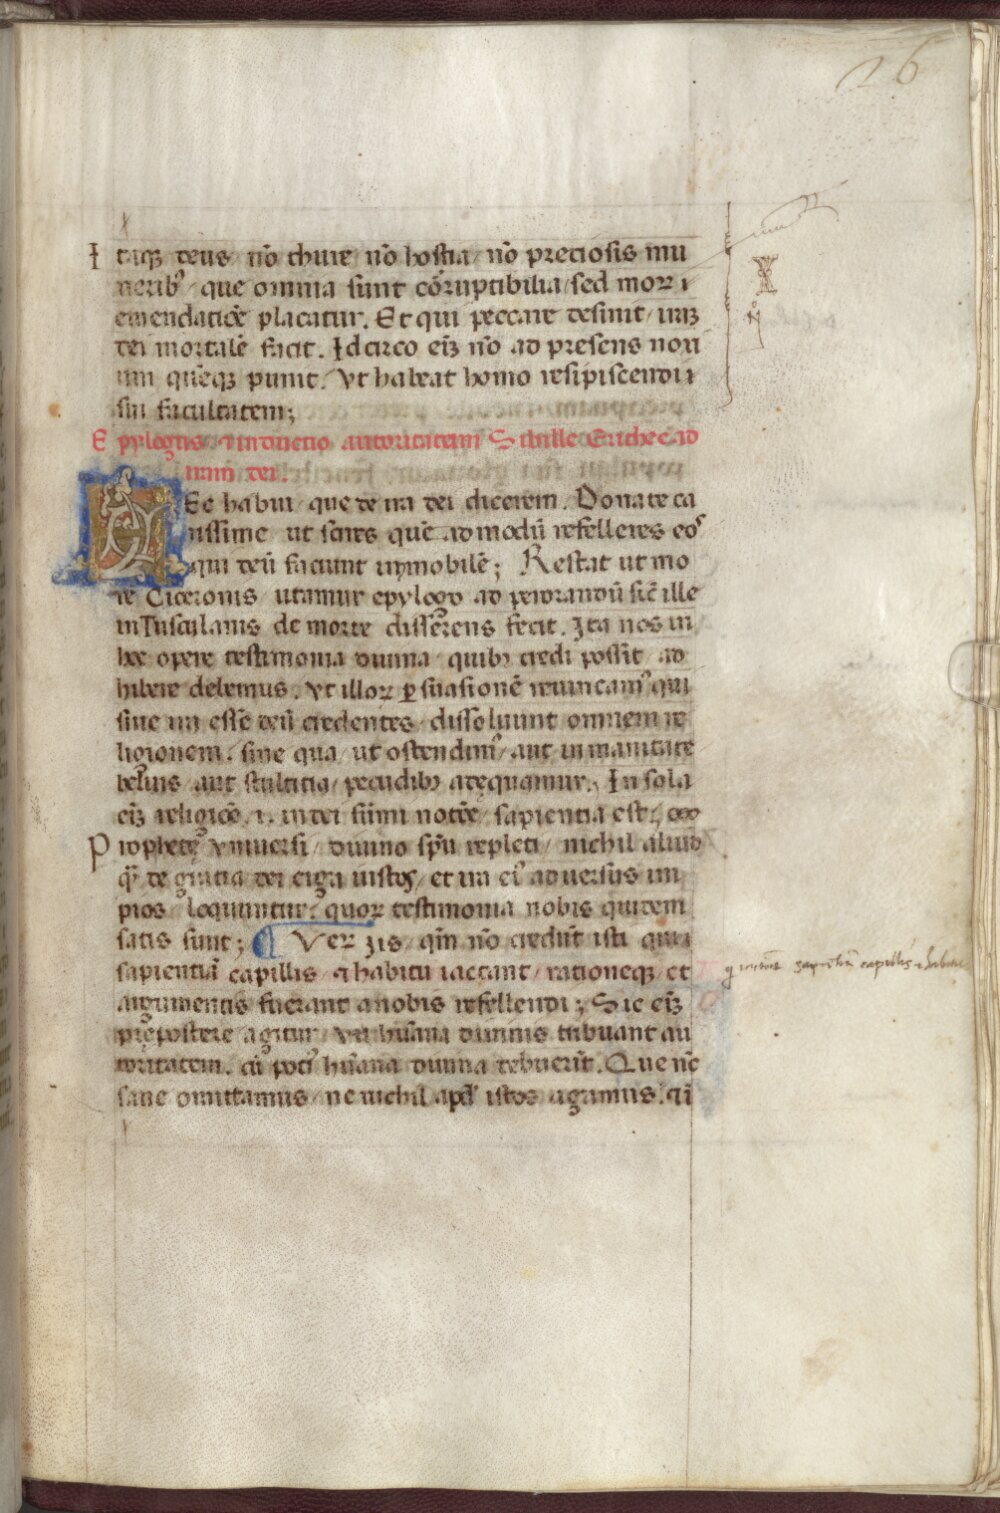 26
Itaqꝫ deus nō thure nō hostia nō preciosis mu
neribꝰ que omnia sunt cōruptibilia sed morū
emendatiōe placatur. Et qui peccare desinit iraꝫ
dei mortalē facit. Idcirco eiꝫ nō ad presens noxi
um quēqꝫ punit. Vt habeat homo resipiscendi
sui facultatem;
Epylogus ⁊ inductio autoritatem Sibille Erithee ad
iram dei.
Ec habui que de ira dei dicerem. Donate ca
rissime ut scires quē ad modū refelleres eos
qui deū faciunt immobilē; Restat ut mo
re Ciceronis utamur epylogo ad perorandū sic ille
in Tusculanis de morte disserens fecit. Ita nos in
hoc opere testimonia diuina quibꝫ credi possit ad
hibere debemus. Vt illoꝝ ꝑsuasionē reuincamꝰ qui
sine ira esse deū credentes dissoluunt omnem re
ligionem. sine qua ut ostendimꝰ aut inmanitate
beluis aut stultitia pecudibꝫ adequamur. In sola
eiꝫ religiōe .i. in dei sūmi notiōe sapientia est;
Prophete vniuersi diuino spū repleti nichil aliud
ꝗ̄ de gratia dei erga iustos et ira eiꝰ aduersus im
pios loquuntur. quoꝝ testimonia nobis quidem
satis sunt; ¶ Veꝝ ꝫis qm̄ nō credūt isti qui
sapientiā capillis ⁊ habitu iactant rationeqꝫ et
argumentis fuerant a nobis refellendi; Sic eiꝫ
prepostere agitur vt hūana diuinis tribuant au
toritatem. cū potiꝰ hūana diuina debuerīt. Que nc̄
sane omittamus ne nichil apd' istos agamus. ⁊
sapientiā capillis ⁊ habitu